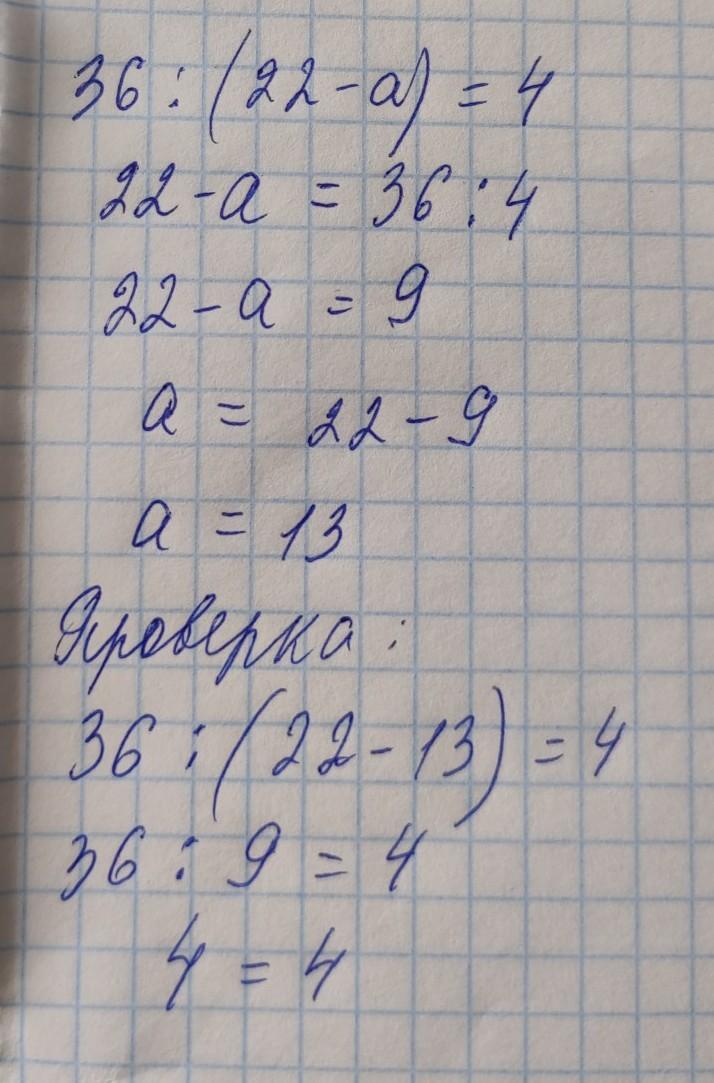 36 : (22 - a) = 4
22 - a = 36 : 4
22 - a = 9
a = 22 - 9
a = 13
Проверка :
36 : (22 - 13) = 4
36 : 9 = 4
4 = 4